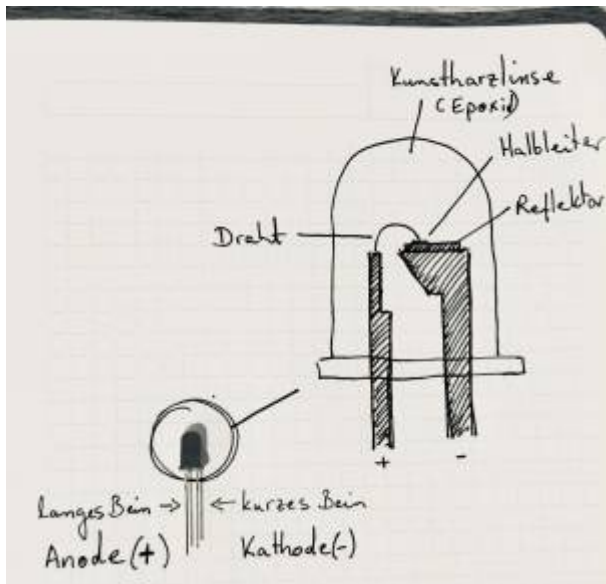 Kunstharzlinse
(Epoxid)
Halbleiter
Reflektor
Draht
+ -
langes Bein → ← kurzes Bein
Anode (+) Kathode (-)